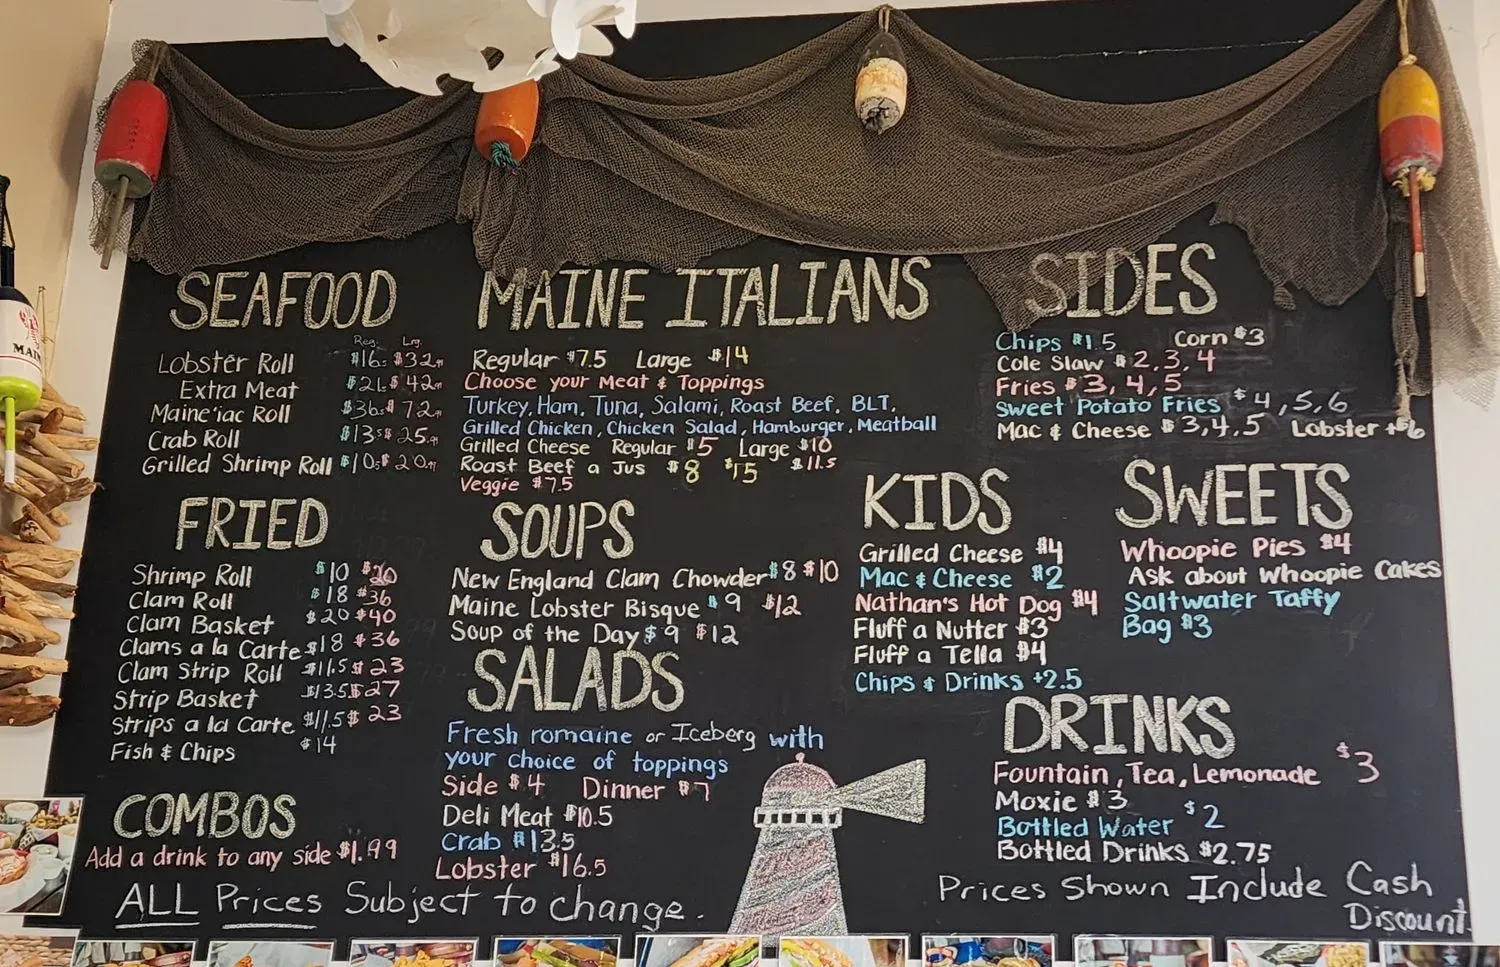 SEAFOOD
Reg. Lrg.
Lobster Roll $16 $32
Extra Meat $21 $42
Maine'iac Roll $36 $72
Crab Roll $13 $25
Grilled Shrimp Roll $10 $20
FRIED
Shrimp Roll $10 $20
Clam Roll $18 $36
Clam Basket $20 $40
Clams a la Carte $18 $36
Clam Strip Roll $11.5 $23
Strip Basket $13.5 $27
Strips a la Carte $11.5 $23
Fish & Chips $14
COMBOS
Add a drink to any side $1.99
MAINE ITALIANS
Regular $7.5 Large $14
Choose your Meat & Toppings
Turkey, Ham, Tuna, Salami, Roast Beef, BLT,
Grilled Chicken, Chicken Salad, Hamburger, Meatball
Grilled Cheese Regular $5 Large $10
Roast Beef a Jus $8 $15 $11.5
Veggie $7.5
SOUPS
New England Clam Chowder $8 $10
Maine Lobster Bisque $9 $12
Soup of the Day $9 $12
SALADS
Fresh romaine or Iceberg with
your choice of toppings
Side $4 Dinner $7
Deli Meat $10.5
Crab $13.5
Lobster $16.5
SIDES
Chips $1.5 Corn $3
Cole Slaw $2,3,4
Fries $3,4,5
Sweet Potato Fries $4,5,6
Mac & Cheese $3,4,5 Lobster +$6
KIDS
Grilled Cheese $4
Mac & Cheese $2
Nathan's Hot Dog $4
Fluff a Nutter $3
Fluff a Tella $4
Chips & Drinks +2.5
SWEETS
Whoopie Pies $4
Ask about Whoopie Cakes
Saltwater Taffy
Bag $3
DRINKS
Fountain, Tea, Lemonade $3
Moxie $3
Bottled Water $2
Bottled Drinks $2.75
ALL Prices Subject to change.
Prices Shown Include Cash
Discount